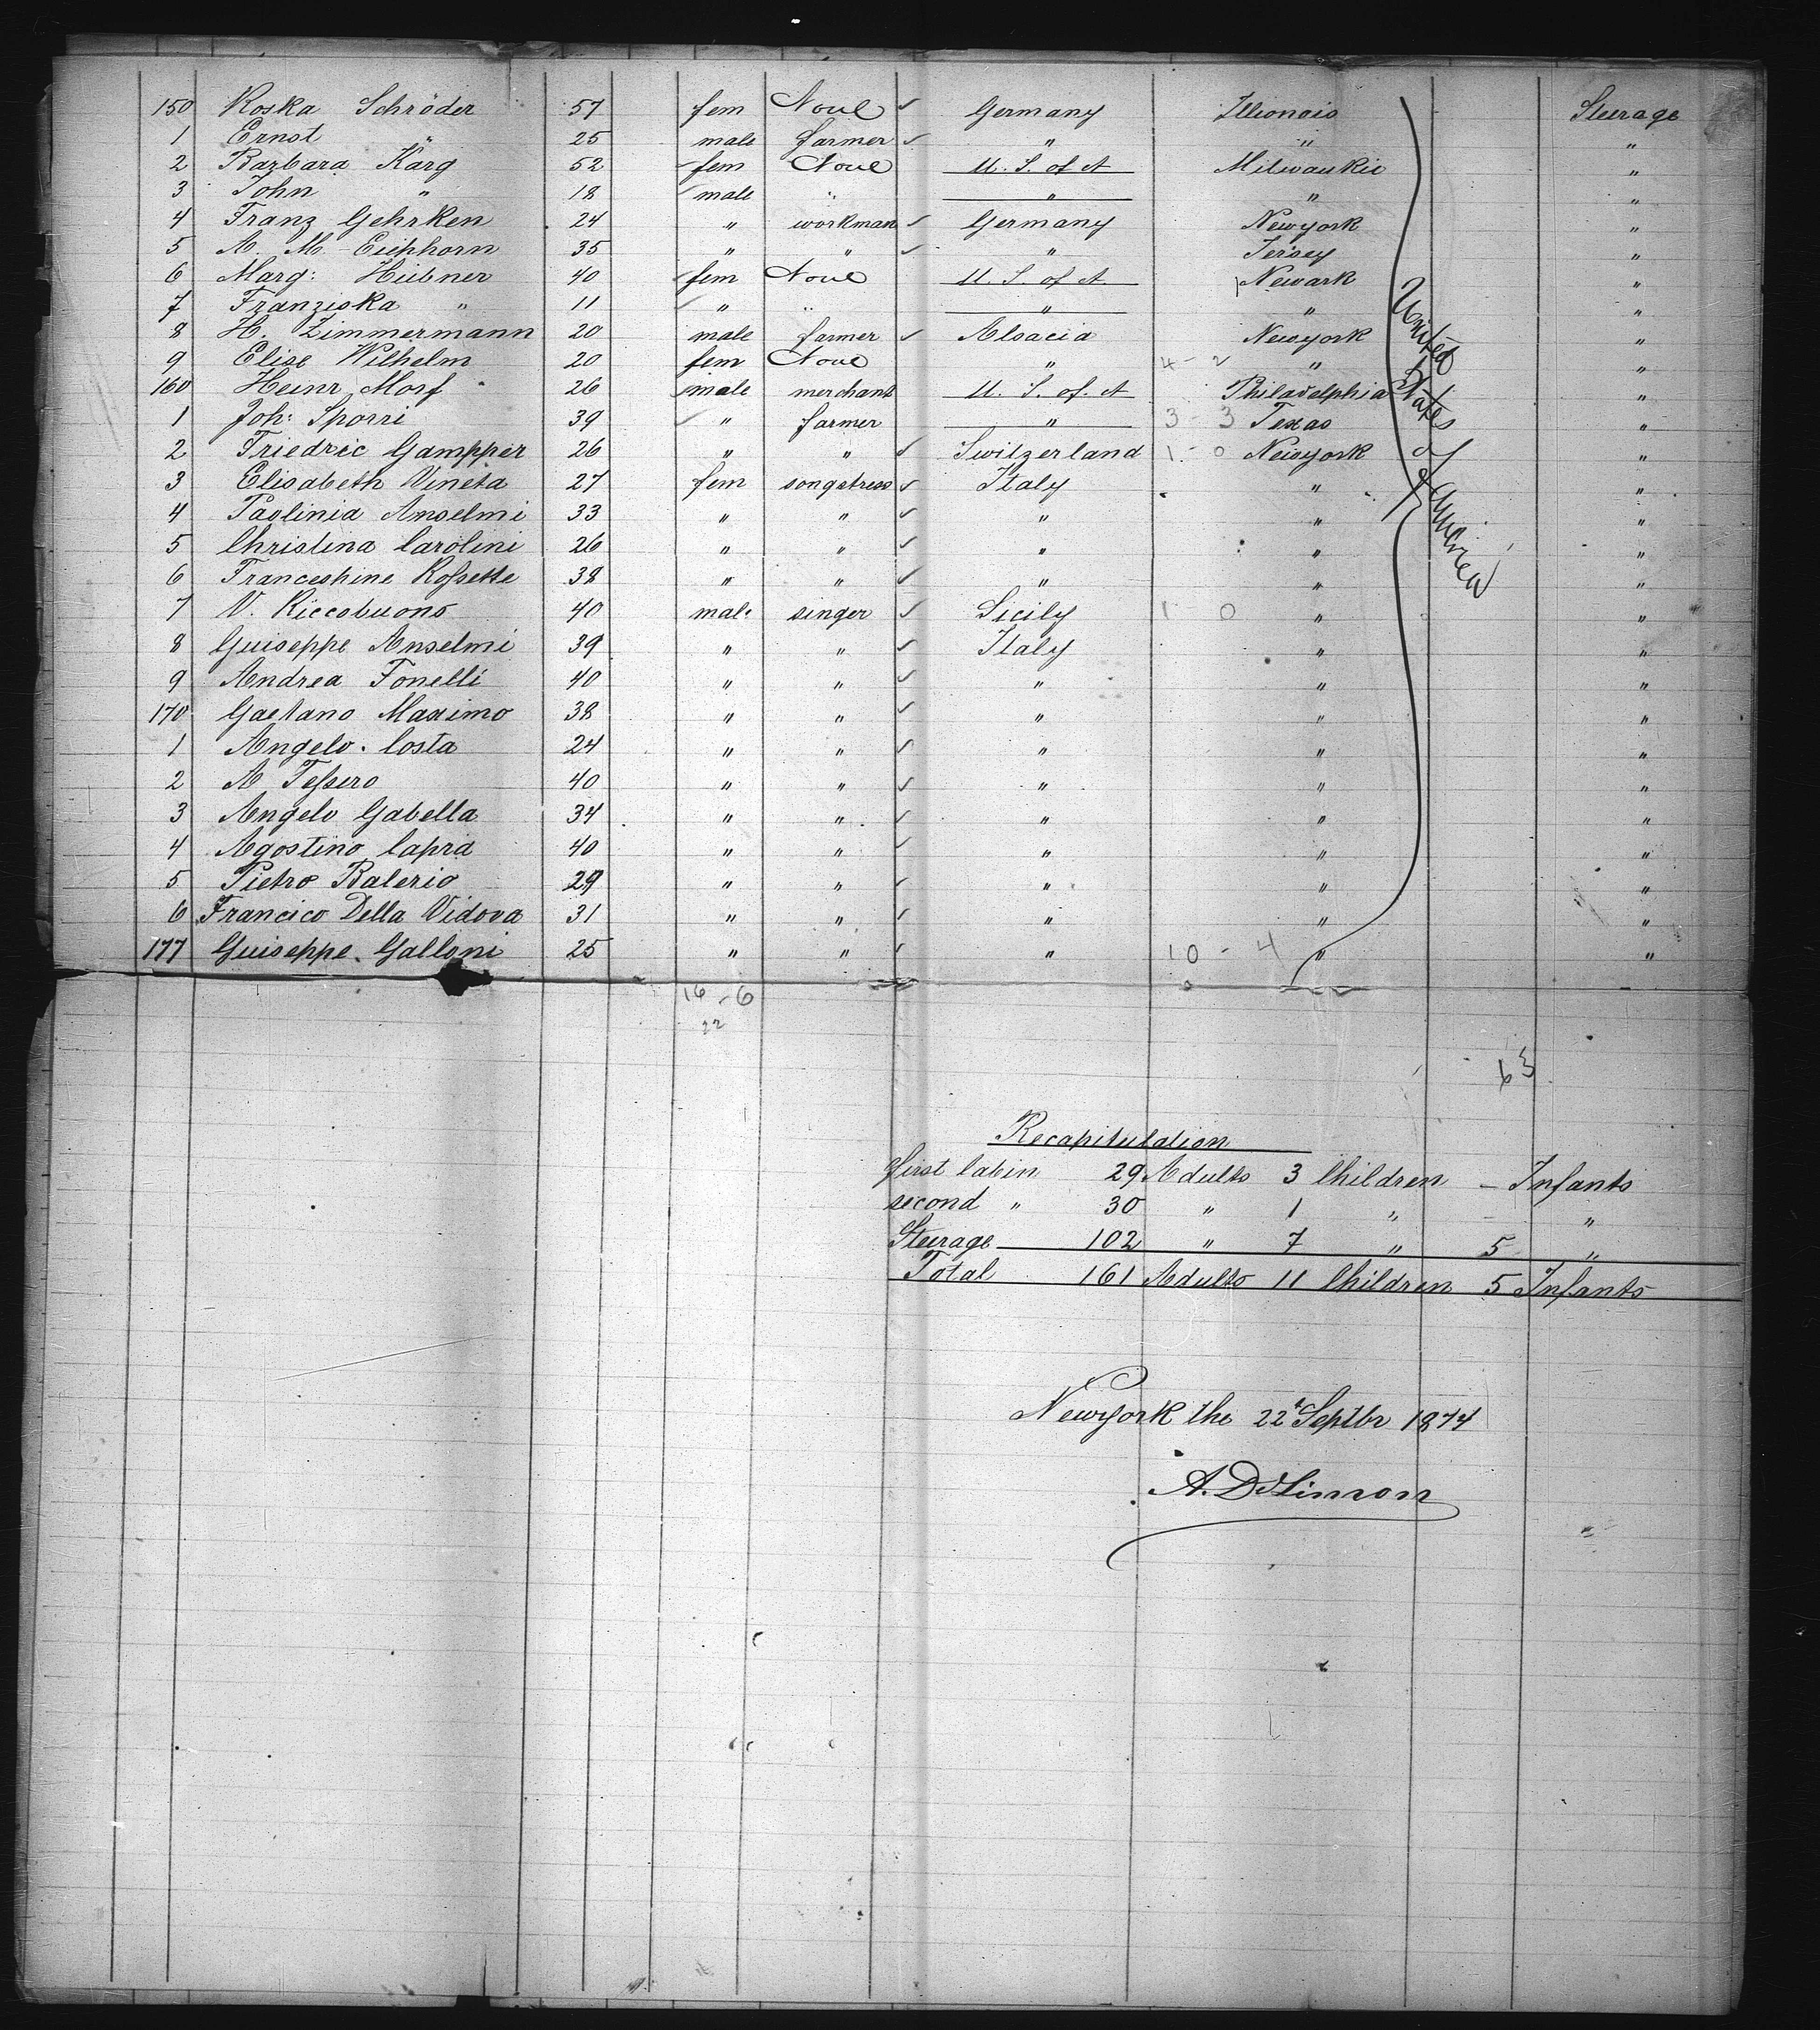 150 Roska Schröder 57 fem None ✓ Germany Illionois Steerage
1 Ernst " 25 male farmer ✓ " " "
2 Barbara Karg 52 fem None U. S. of A Milwaukie "
3 John " 18 male " " " "
4 Franz Gehrken 24 " workman ✓ Germany Newyork "
5 A. M. Eichhorn 35 " " ✓ " Jersey "
6 Marg: Hübner 40 fem None U. S. of A. Newark "
7 Franziska " 11 " " " " "
8 H. Zimmermann 20 male farmer ✓ Alsacia Newyork "
9 Elise Wilhelm 20 fem None " 4 - 2 " "
160 Heinr Morf 26 male merchant U. S. of. A Philadelphia "
1 Joh: Sporri 39 " farmer " 3 - 3 Texas "
2 Friedric Gampper 26 " " ✓ Switzerland 1 - 0 Newyork "
3 Elisabeth Vineta 27 fem songstress ✓ Italy " "
4 Paolinia Anselmi 33 " " ✓ " " "
5 Christina Carolini 26 " " ✓ " " "
6 Franceshine Rossette 38 " " ✓ " " "
7 V. Riccobuono 40 male singer ✓ Sicily 1 0 " "
8 Guiseppe Anselmi 39 " " ✓ Italy " "
9 Andrea Fonelli 40 " " ✓ " " "
170 Gaetano Maximo 38 " " ✓ " " "
1 Angelo. Costa 24 " " ✓ " " "
2 A Tessero 40 " " ✓ " " "
3 Angelo Gabella 34 " " ✓ " " "
4 Agostino Capra 40 " " ✓ " " "
5 Pietro Balerio 29 " " ✓ " " "
6 Francico Della Vidova 31 " " ✓ " " "
177 Guiseppe. Galloni 25 " " ✓ " 10 - 4 " "
United States of America
16 - 6
22
63
Recapitulation
first Cabin 29 Adults 3 Children - Infants
second " 30 " 1 " - "
Steerage 102 " 7 " 5 "
Total 161 Adults 11 Children 5 Infants
Newyork the 22 Septbr 1874